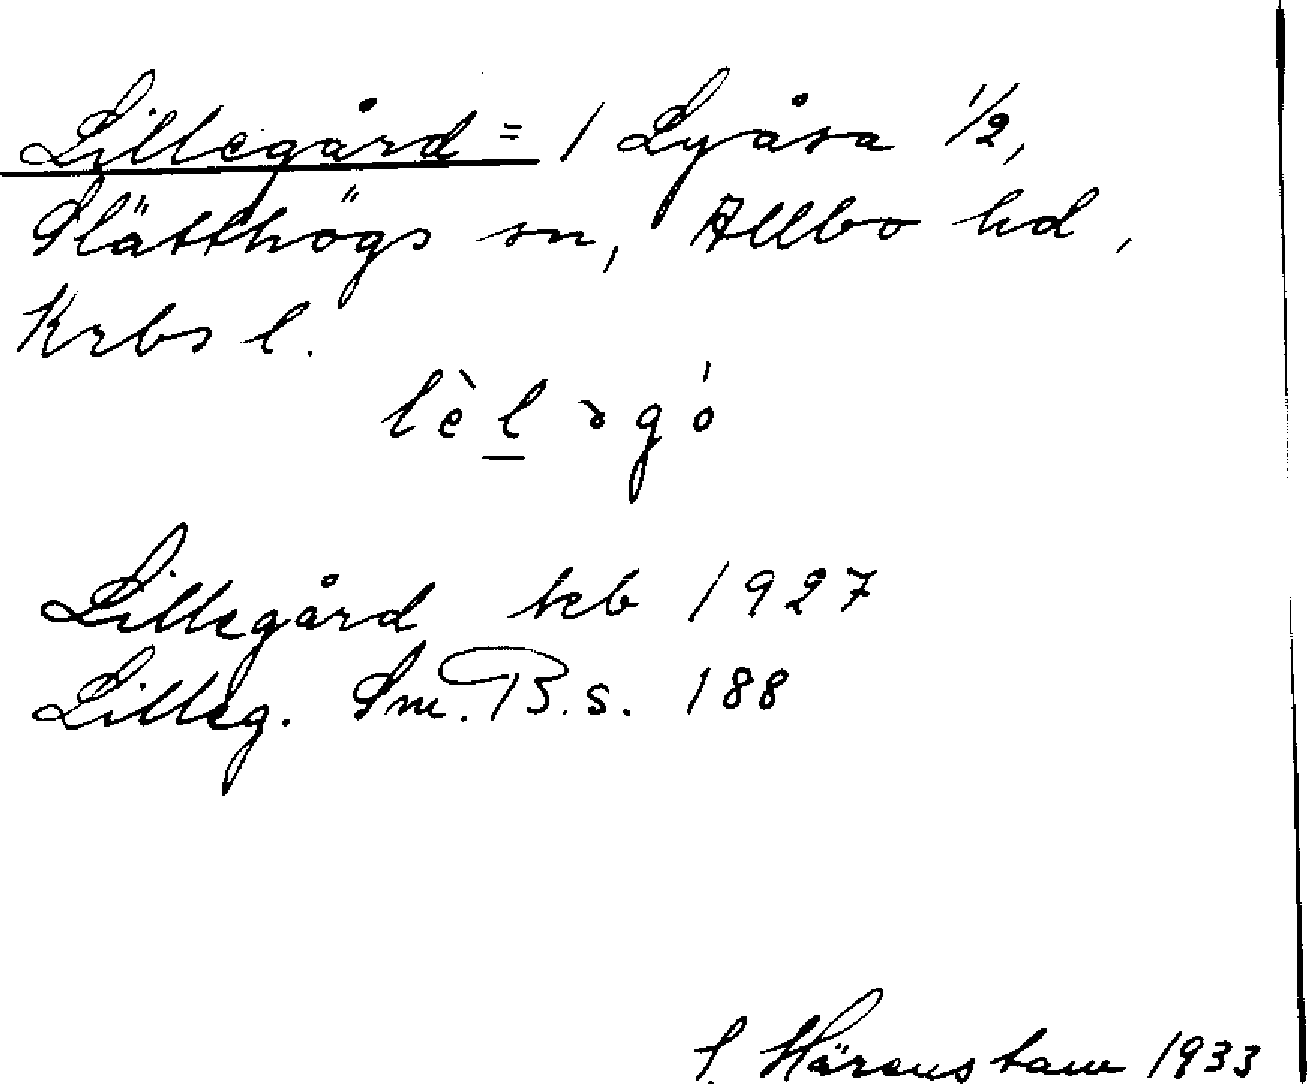 Lillegård = / Lyåsa 1/2,
Slätthögs sn, Allbo hd,
Krbs l.
lèləgó
Lillegård teb 1927
Lilleg. Sm. B. s. 188
S. Härenstam 1933